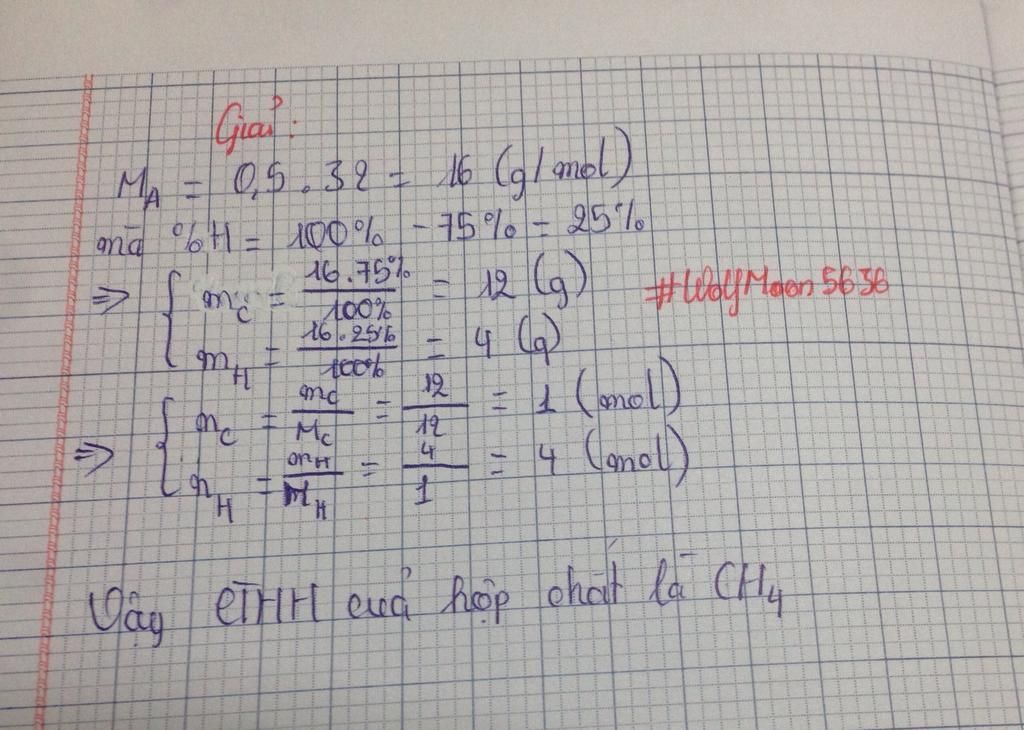 Giải:
M_A = 0,5 . 32 = 16 (g/mol)
mà %H = 100% - 75% = 25%
⇒ { m_C = 16.75% / 100% = 12 (g)
m_H = 16.25% / 100% = 4 (g)
#WolfMoon5636
⇒ { n_C = m_C / M_C = 12 / 12 = 1 (mol)
n_H = m_H / M_H = 4 / 1 = 4 (mol)
Vậy CTHH của hợp chất là CH₄